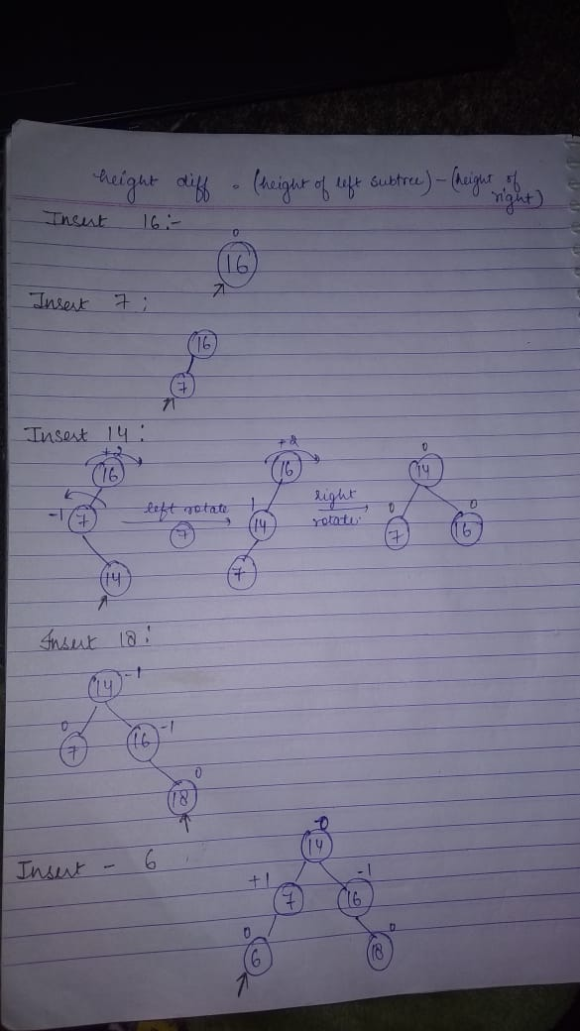 height diff = (height of left subtree) - (height of right)
Insert 16:-
0
16
Insert 7:
16
7
Insert 14:
+2
16
-1
7
14
left rotate
7
+2
16
1
14
7
right
rotate.
0
14
0
7
0
16
Insert 18:
14 -1
0
7
16 -1
0
18
Insert - 6
0
14
+1
7
-1
16
0
6
0
18